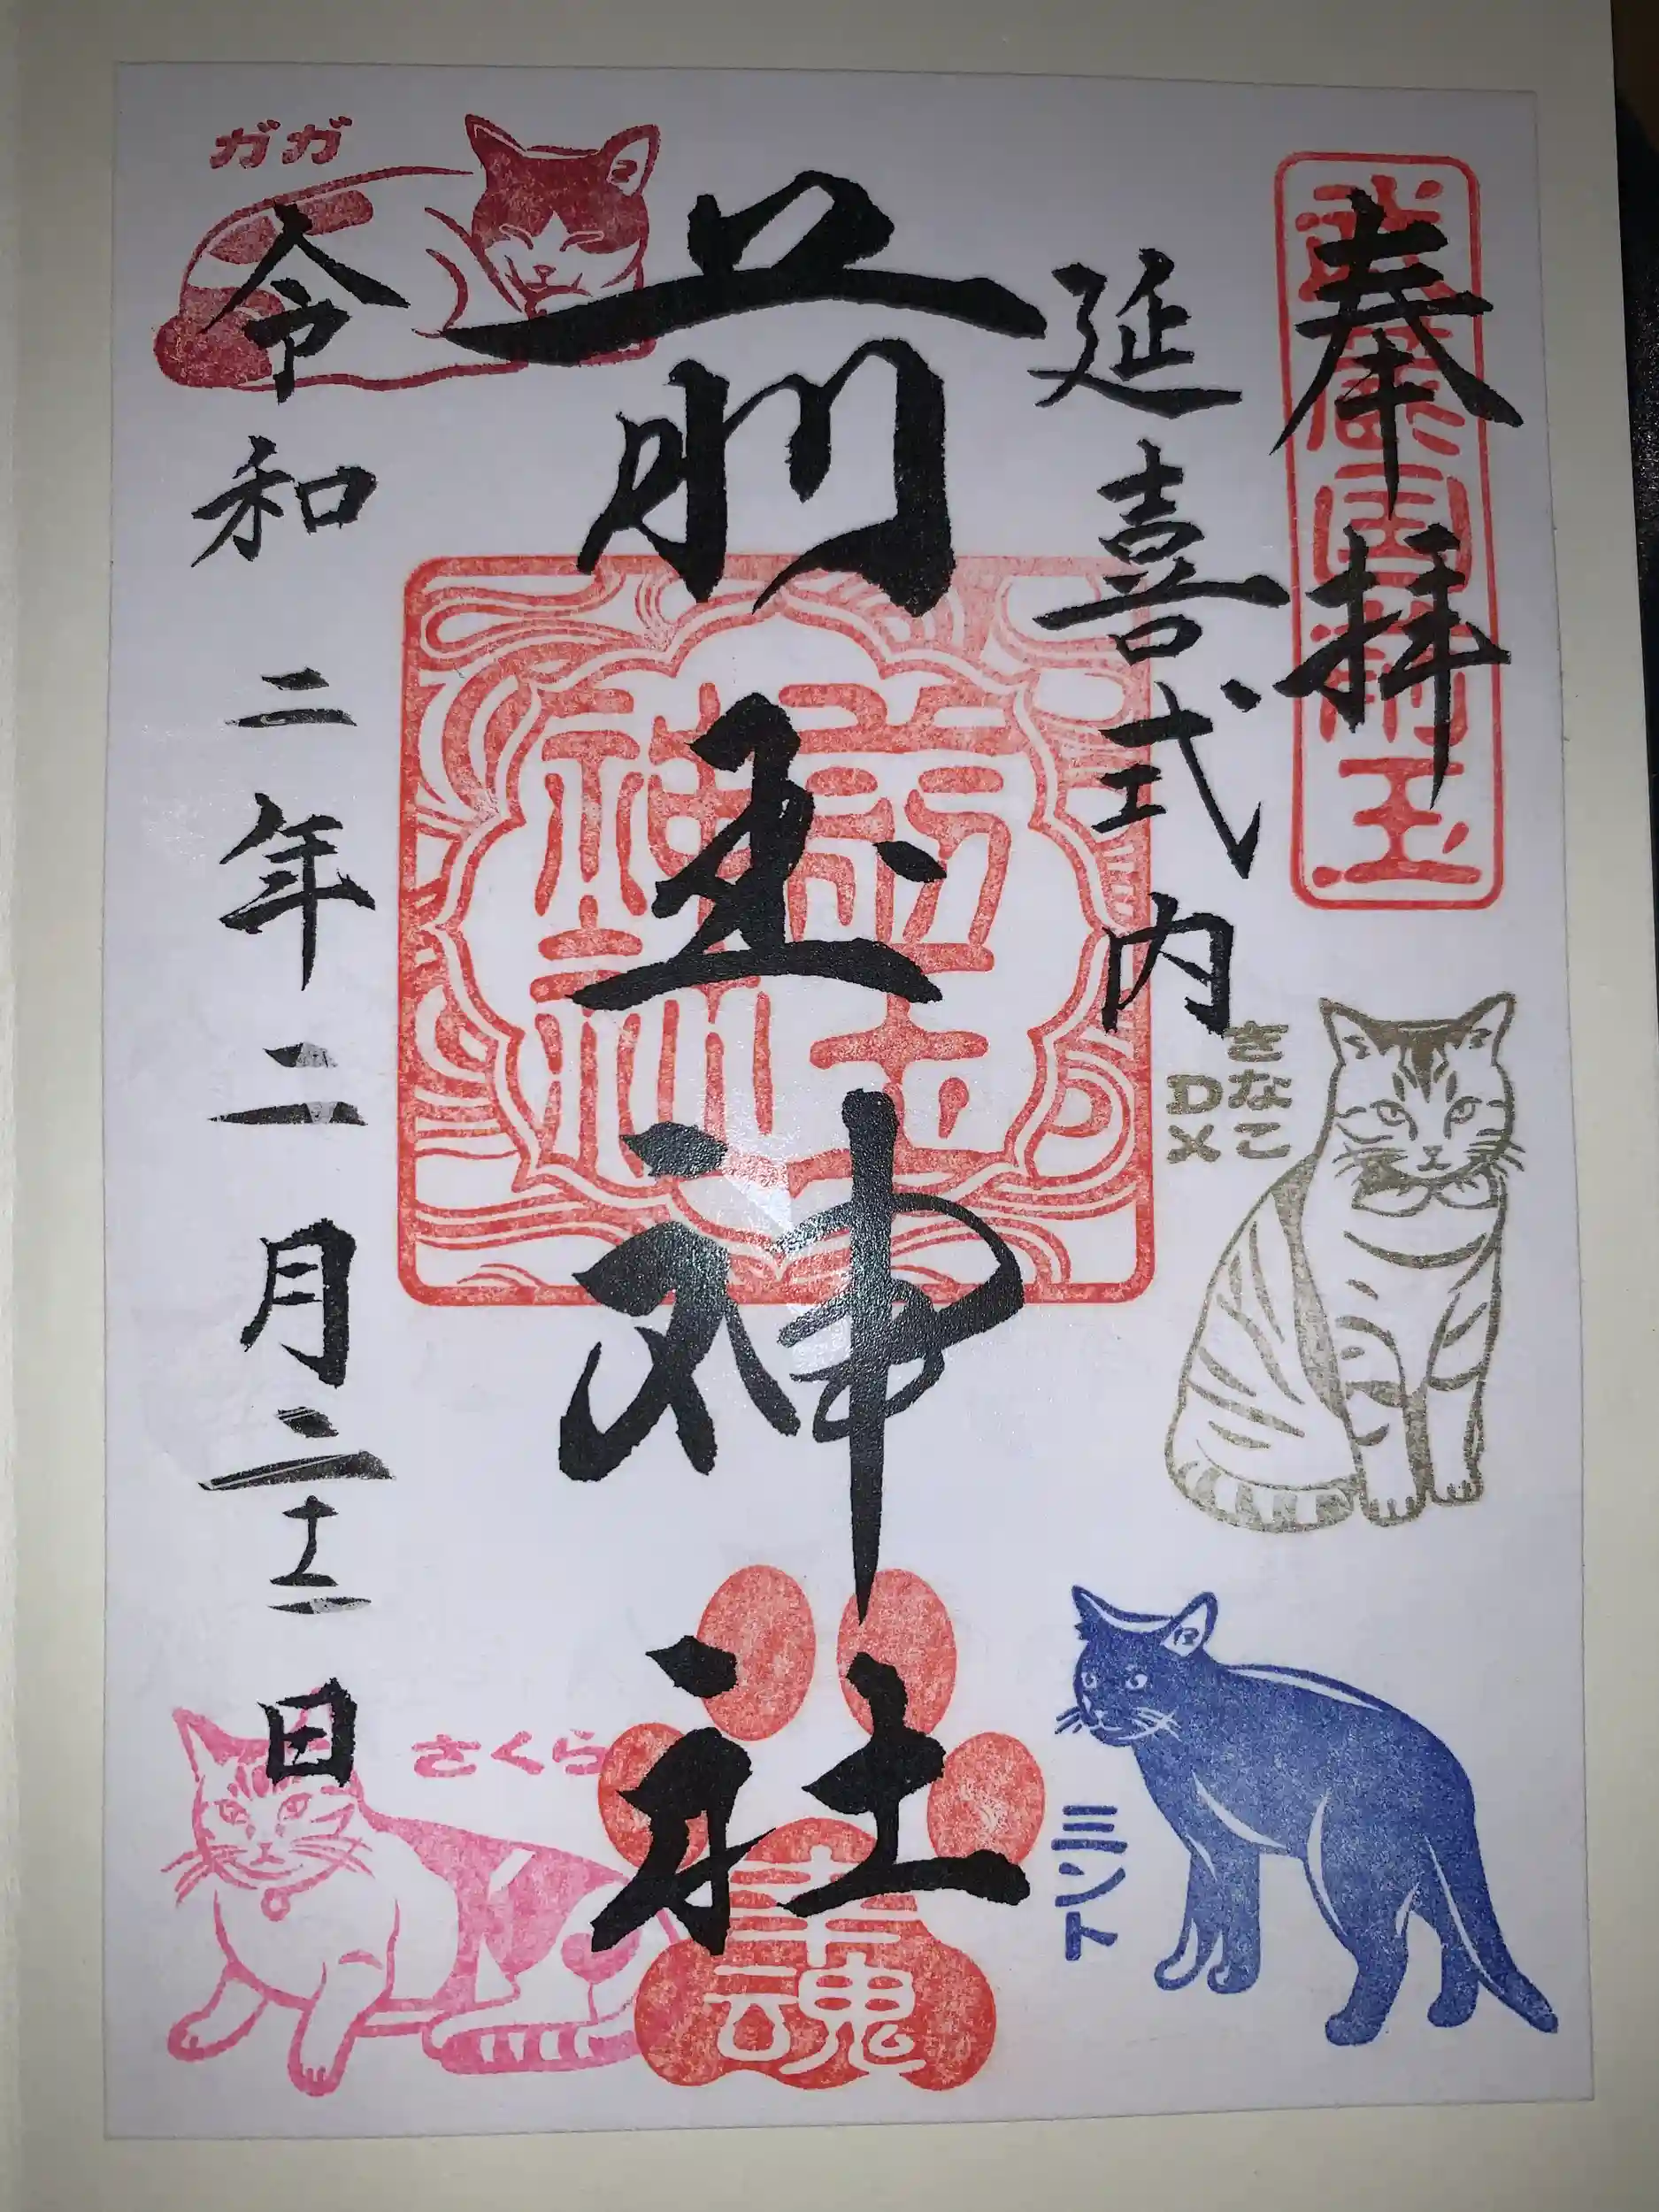 奉拝
延喜式内
きなこ
DX
ミント
前玉神社
前玉
神社
幸魂
ガガ
令和二年二月二十二日
さくら